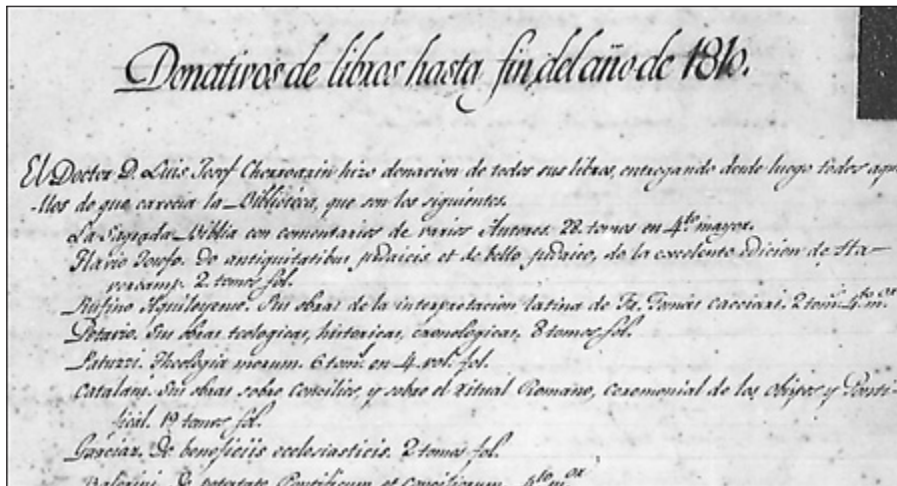 Donativos de libros hasta fin del año de 1810.
El Doctor D. Luis Josef Chorroarin hizo donacion de todos sus libros, entregando desde luego todos aque-
llos de que carecia la Biblioteca, que son los siguientes.
La Sagrada Biblia con comentarios de varios Autores. 28 tomos en 4to mayor.
Flavio Josefo. De antiquitatibus judaicis et de bello judaico, de la excelente edicion de Ha-
vercamp. 2. tomos fol.
Rufino Aquileyense. Sus obras de la interpretacion latina de Fr. Tomas Cacciari. 2 tom. 4to mor
Petavio. Sus obras teologicas, historicas, cronologicas. 8 tomos fol.
Patuzzi. Theologia morum. 6 tom. en 4. vol. fol.
Catalani. Sus obras sobre Concilios, y sobre el ritual Romano, ceremonial de los obispos y Ponti-
fical. 19 tomos fol.
Garcias. De beneficiis ecclesiasticis. 2 tomos fol.
Balerini. De potestate Pontificum et Conciliorum. 4to mor